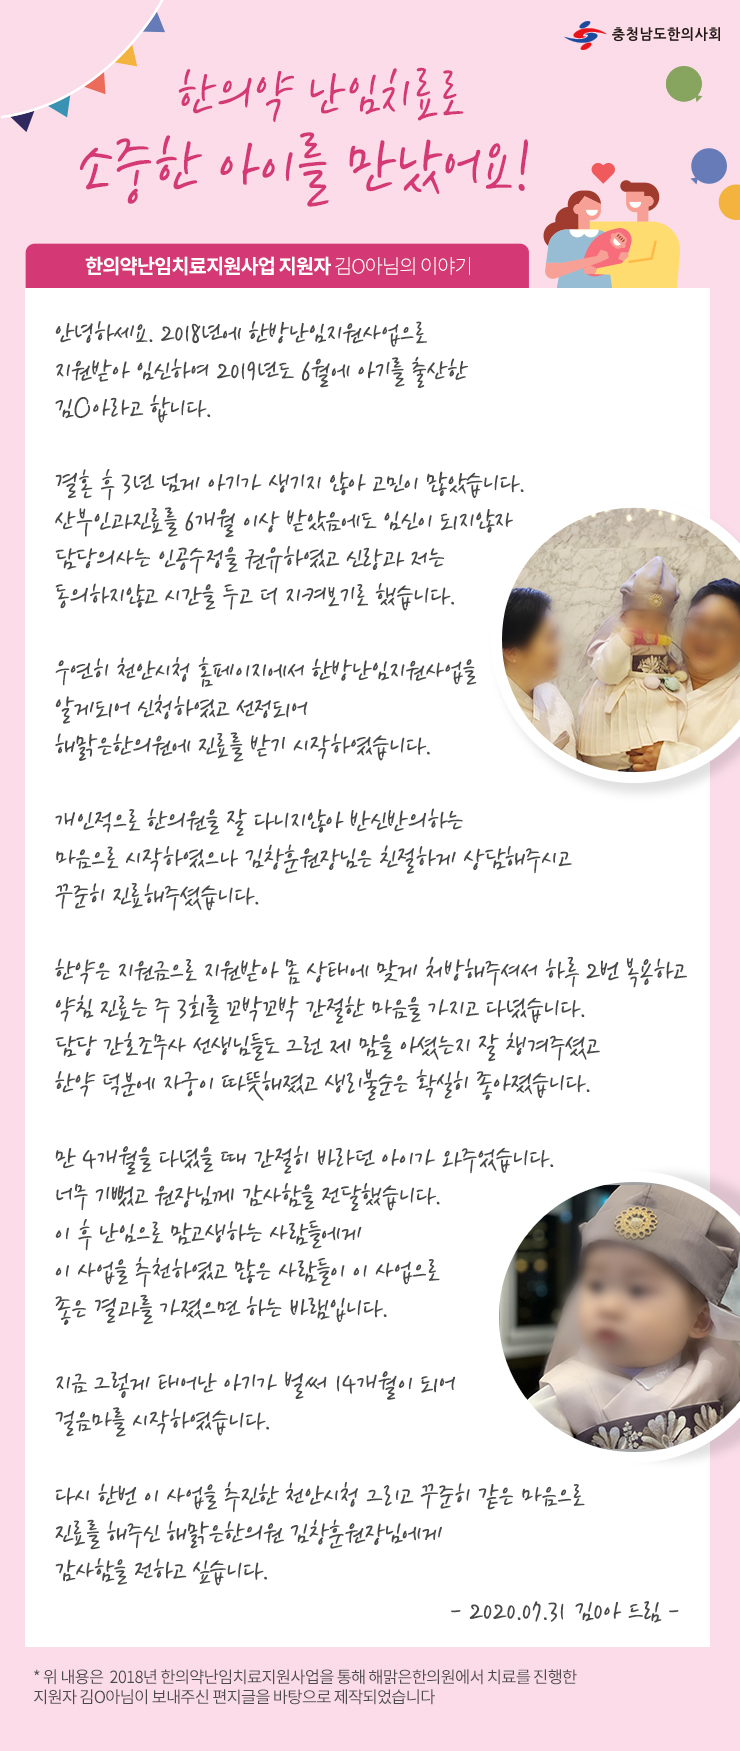 충청남도한의사회
한의약 난임치료로
소중한 아이를 만났어요!
한의약난임치료지원사업 지원자 김O아님의 이야기
안녕하세요. 2018년에 한방난임지원사업으로
지원받아 임신하여 2019년도 6월에 아기를 출산한
김O아라고 합니다.
결혼 후 3년 넘게 아기가 생기지 않아 고민이 많았습니다.
산부인과진료를 6개월 이상 받았음에도 임신이 되지않자
담당의사는 인공수정을 권유하였고 신랑과 저는
동의하지않고 시간을 두고 더 지켜보기로 했습니다.
우연히 천안시청 홈페이지에서 한방난임지원사업을
알게되어 신청하였고 선정되어
해맑은한의원에 진료를 받기 시작하였습니다.
개인적으로 한의원을 잘 다니지않아 반신반의하는
마음으로 시작하였으나 김창훈원장님은 친절하게 상담해주시고
꾸준히 진료해주셨습니다.
한약은 지원금으로 지원받아 몸 상태에 맞게 처방해주셔서 하루 2번 복용하고
약침 진료는 주 3회를 꼬박꼬박 간절한 마음을 가지고 다녔습니다.
담당 간호조무사 선생님들도 그런 제 맘을 아셨는지 잘 챙겨주셨고
한약 덕분에 자궁이 따뜻해졌고 생리불순은 확실히 좋아졌습니다.
만 4개월을 다녔을 때 간절히 바라던 아이가 와주었습니다.
너무 기뻤고 원장님께 감사함을 전달했습니다.
이 후 난임으로 맘고생하는 사람들에게
이 사업을 추천하였고 많은 사람들이 이 사업으로
좋은 결과를 가졌으면 하는 바램입니다.
지금 그렇게 태어난 아기가 벌써 14개월이 되어
걸음마를 시작하였습니다.
다시 한번 이 사업을 추진한 천안시청 그리고 꾸준히 같은 마음으로
진료를 해주신 해맑은한의원 김창훈원장님에게
감사함을 전하고 싶습니다.
- 2020.07.31 김O아 드림 -
* 위 내용은 2018년 한의약난임치료지원사업을 통해 해맑은한의원에서 치료를 진행한
지원자 김O아님이 보내주신 편지글을 바탕으로 제작되었습니다